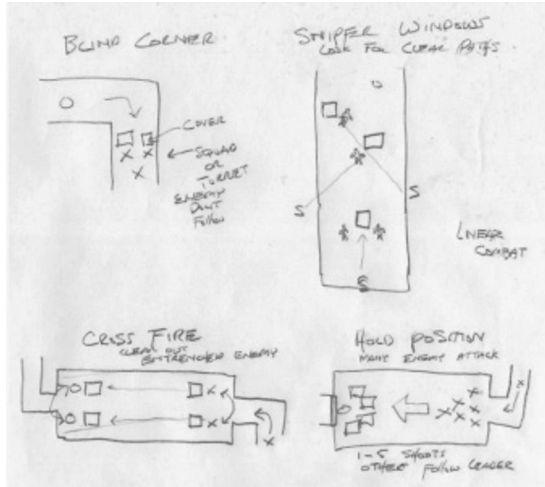 BLIND CORNER
O
COVER
X X
X
SQUAD
OR
TURRET
ENEMY
DON'T
FOLLOW
SNIPER WINDOWS
LOOK FOR CLEAR PATHS
O
S
S
S
LINEAR
COMBAT
CROSS FIRE
CLEAR OUT
ENTRENCHED ENEMY
O X
O X
X
HOLD POSITION
MANY ENEMY ATTACK
O
X X X X X X
X
1-5 SHOOTS
OTHERS FOLLOW LEADER